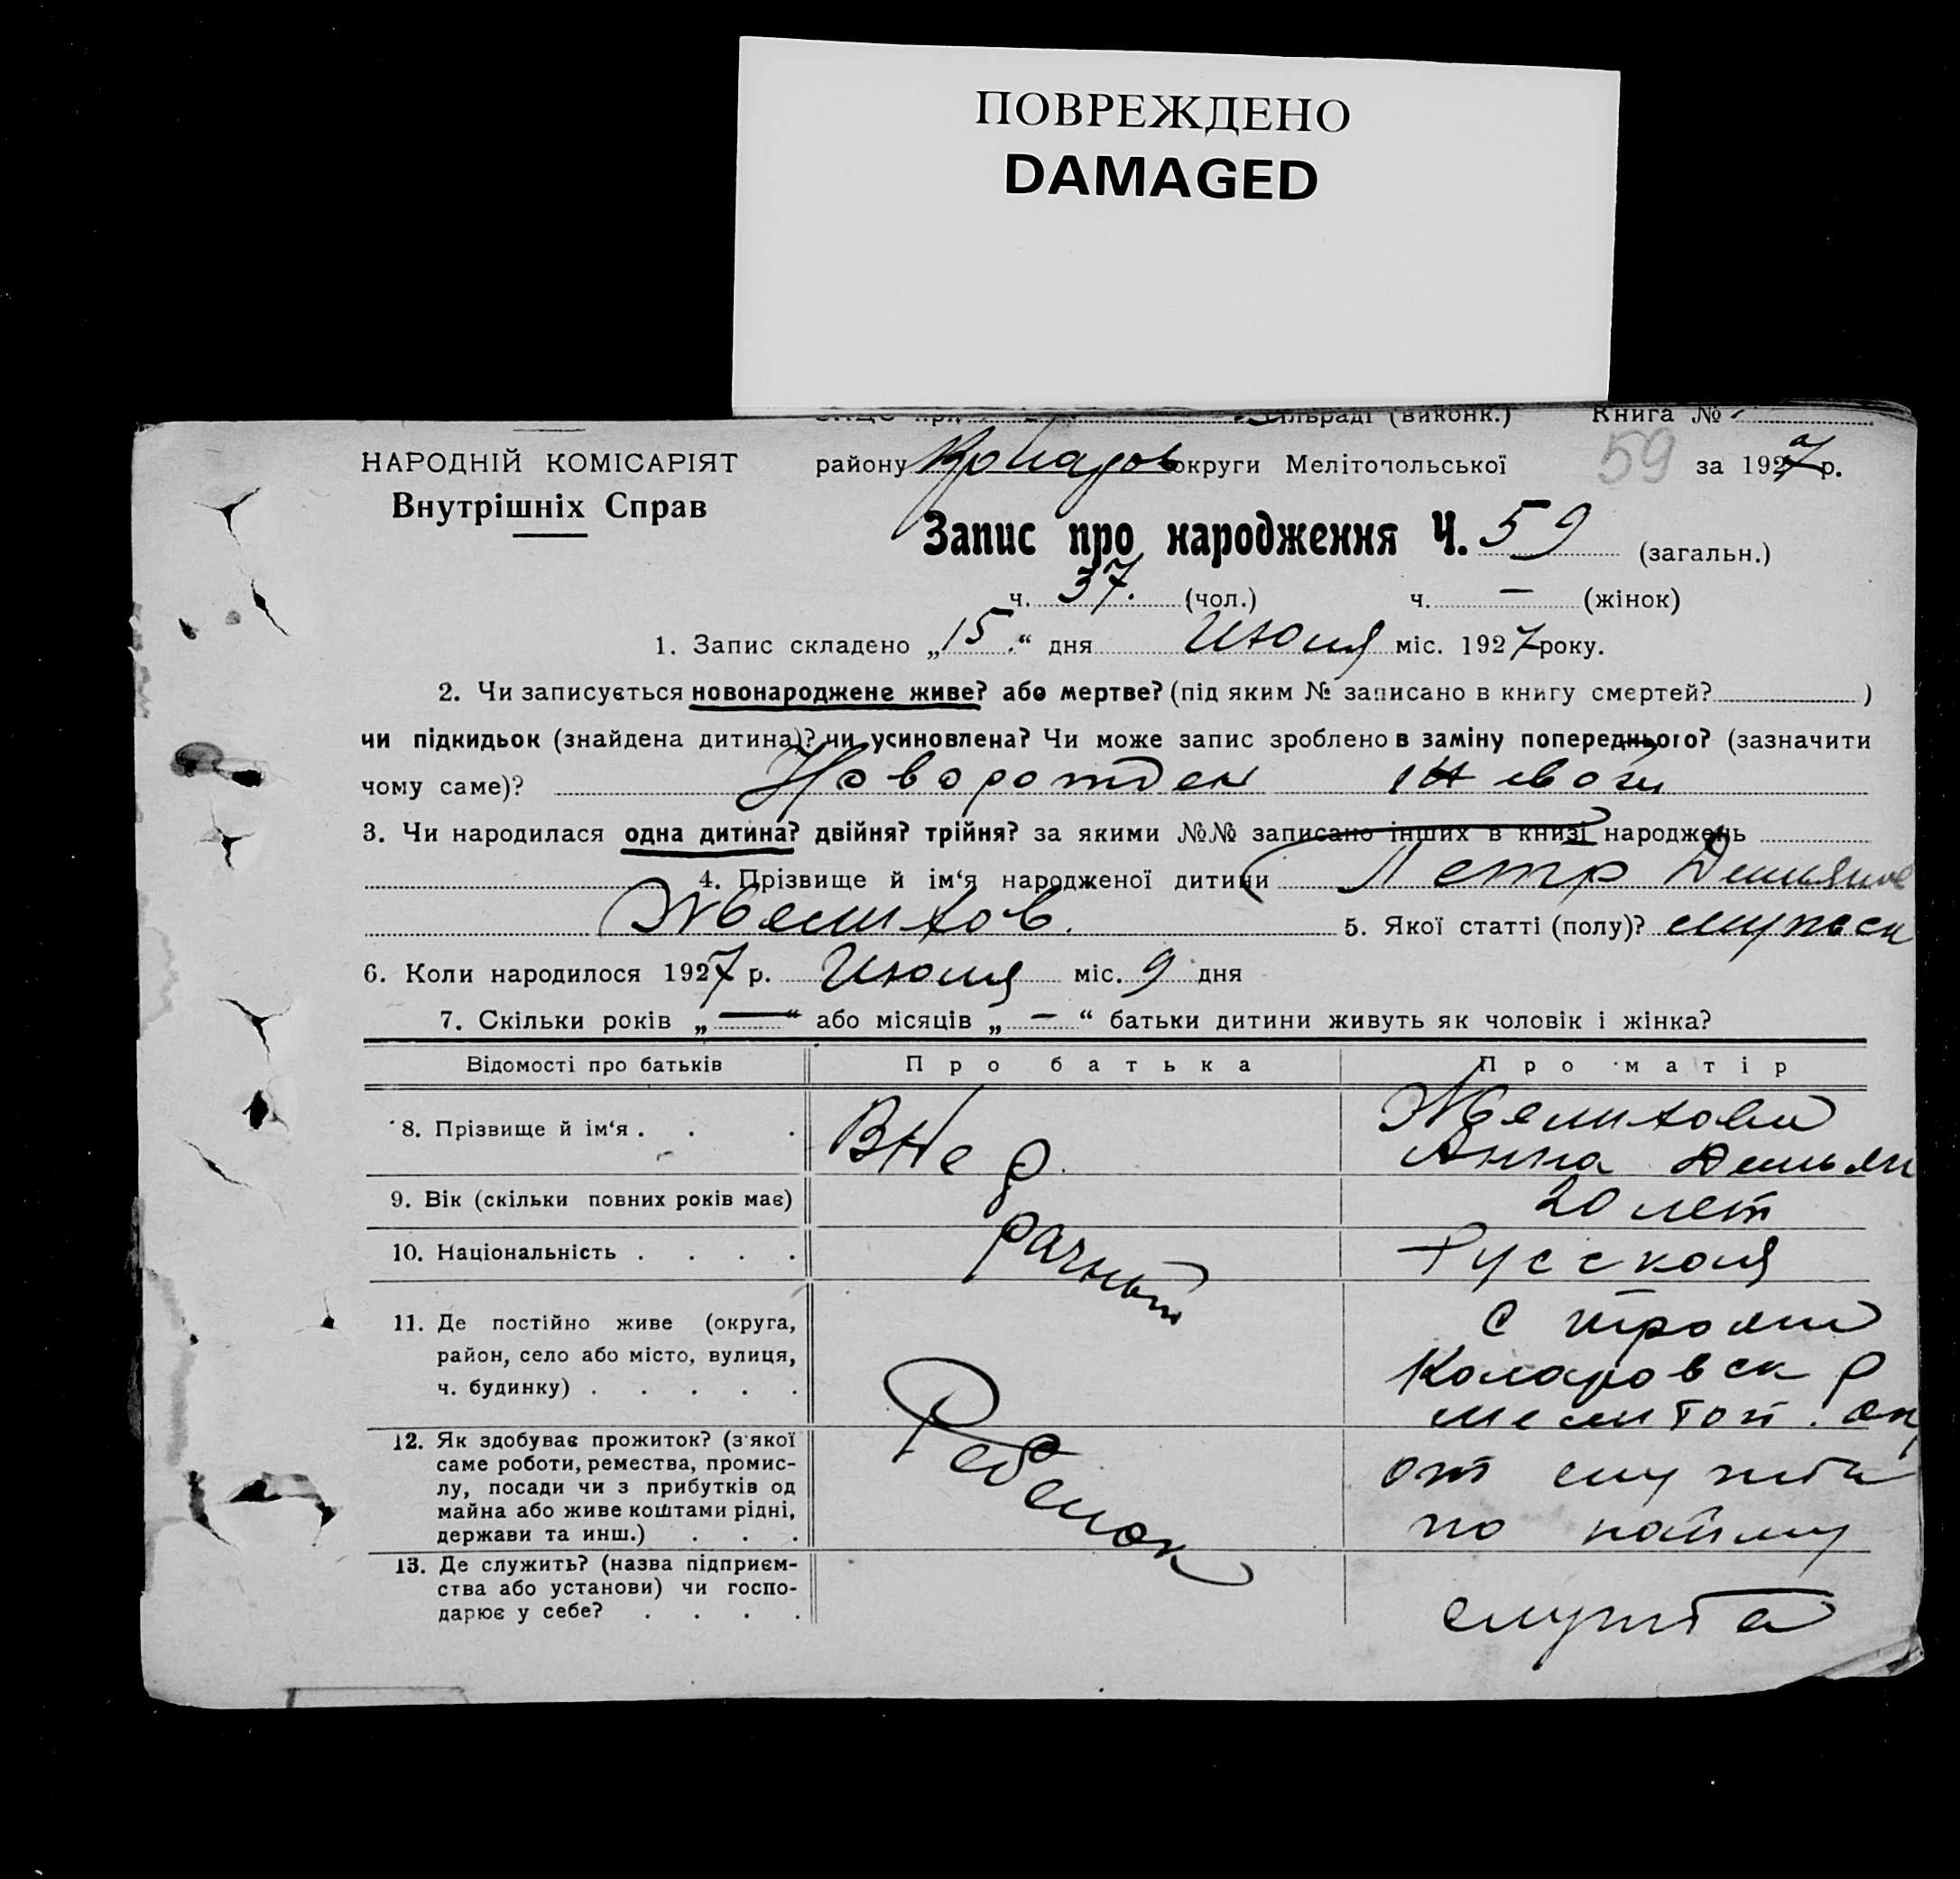 ПОВРЕЖДЕНО
DAMAGED
сільраді (виконк.) Книга №
НАРОДНІЙ КОМІСАРІЯТ
Внутрішніх Справ
району Коларов округи Мелітопольської 59 за 1927 р.
Запис про народження Ч. 59 (загальн.)
ч. 37. (чол.) ч. — (жінок)
1. Запис складено „15.“ дня Июля міс. 1927 року.
2. Чи записується новонароджене живе? або мертве? (під яким № записано в книгу смертей? )
чи підкидьок (знайдена дитина)? чи усиновлена? Чи може запис зроблено в заміну попереднього? (зазначити
чому саме)? Новорожден живой
3. Чи народилася одна дитина? двійня? трійня? за якими №№ записано інших в книзі народжень
4. Прізвище й ім‘я народженої дитини Петр
5. Якої статті (полу)? мужск
6. Коли народилося 1927 р. Июля міс. 9 дня
7. Скільки років „—“ або місяців „—“ батьки дитини живуть як чоловік і жінка?
Відомості про батьків Про батька Про матір
8. Прізвище й ім‘я . . . Внеб
Анна Демьян
9. Вік (скільки повних років має) 20 лет
10. Національність . . . . рачный Русская
11. Де постійно живе (округа,
район, село або місто, вулиця,
ч. будинку) . . . . .
Коларовск р
Мелитоп. ок
12. Як здобуває прожиток? (з якої
саме роботи, ремества, промис-
лу, посади чи з прибутків од
майна або живе коштами рідні,
держави та инш.) . . .
Ребенок
от службы
по найму
13. Де служить? (назва підприєм-
ства або установи) чи госпо-
дарює у себе? . . . .
служба